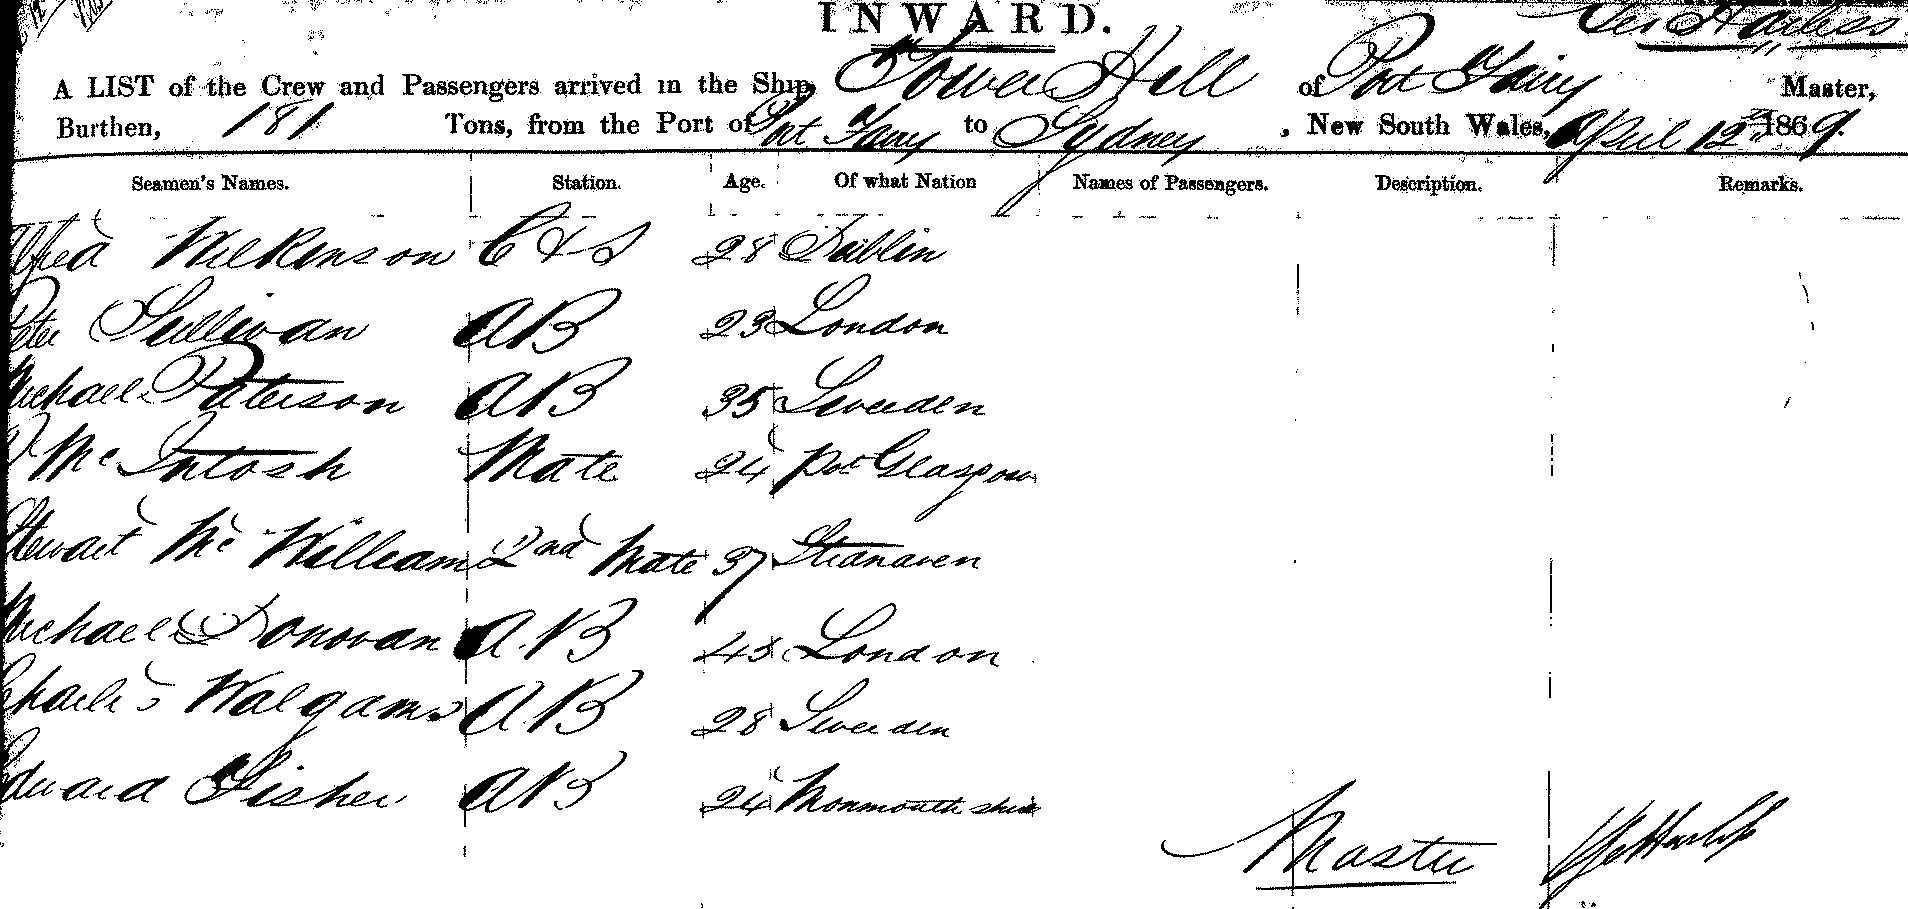 INWARD.
A LIST of the Crew and Passengers arrived in the Ship, Tower Hill of Port Fairy Master,
Burthen, 181 Tons, from the Port of Port Fairy to Sydney, New South Wales, April 12th 1869.
Seamen's Names. Station. Age. Of what Nation Names of Passengers. Description. Remarks.
Alfred Wilkinson C & S 28 Dublin
Peter Sullivan AB 23 London
Michael Paterson AB 35 Sweeden
McIntosh Mate 24 Port Glasgow
Stewart McWilliam 2nd Mate 37 Stranaven
Michael Donovan A.B 43 London
Charles A.B 28 Sweeden
Edward Fisher AB 24 Monmouthshire
Master